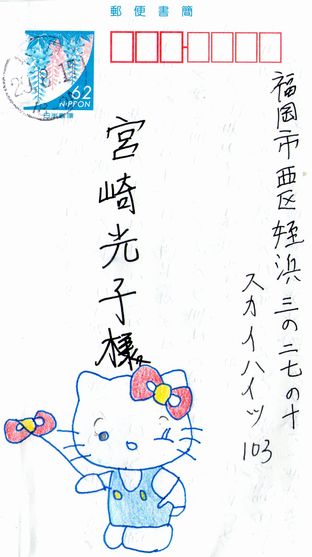 郵便書簡
62
NIPPON
日本郵便
福岡市西区姪浜三の二七の十
スカイハイツ
103
宮崎光子様